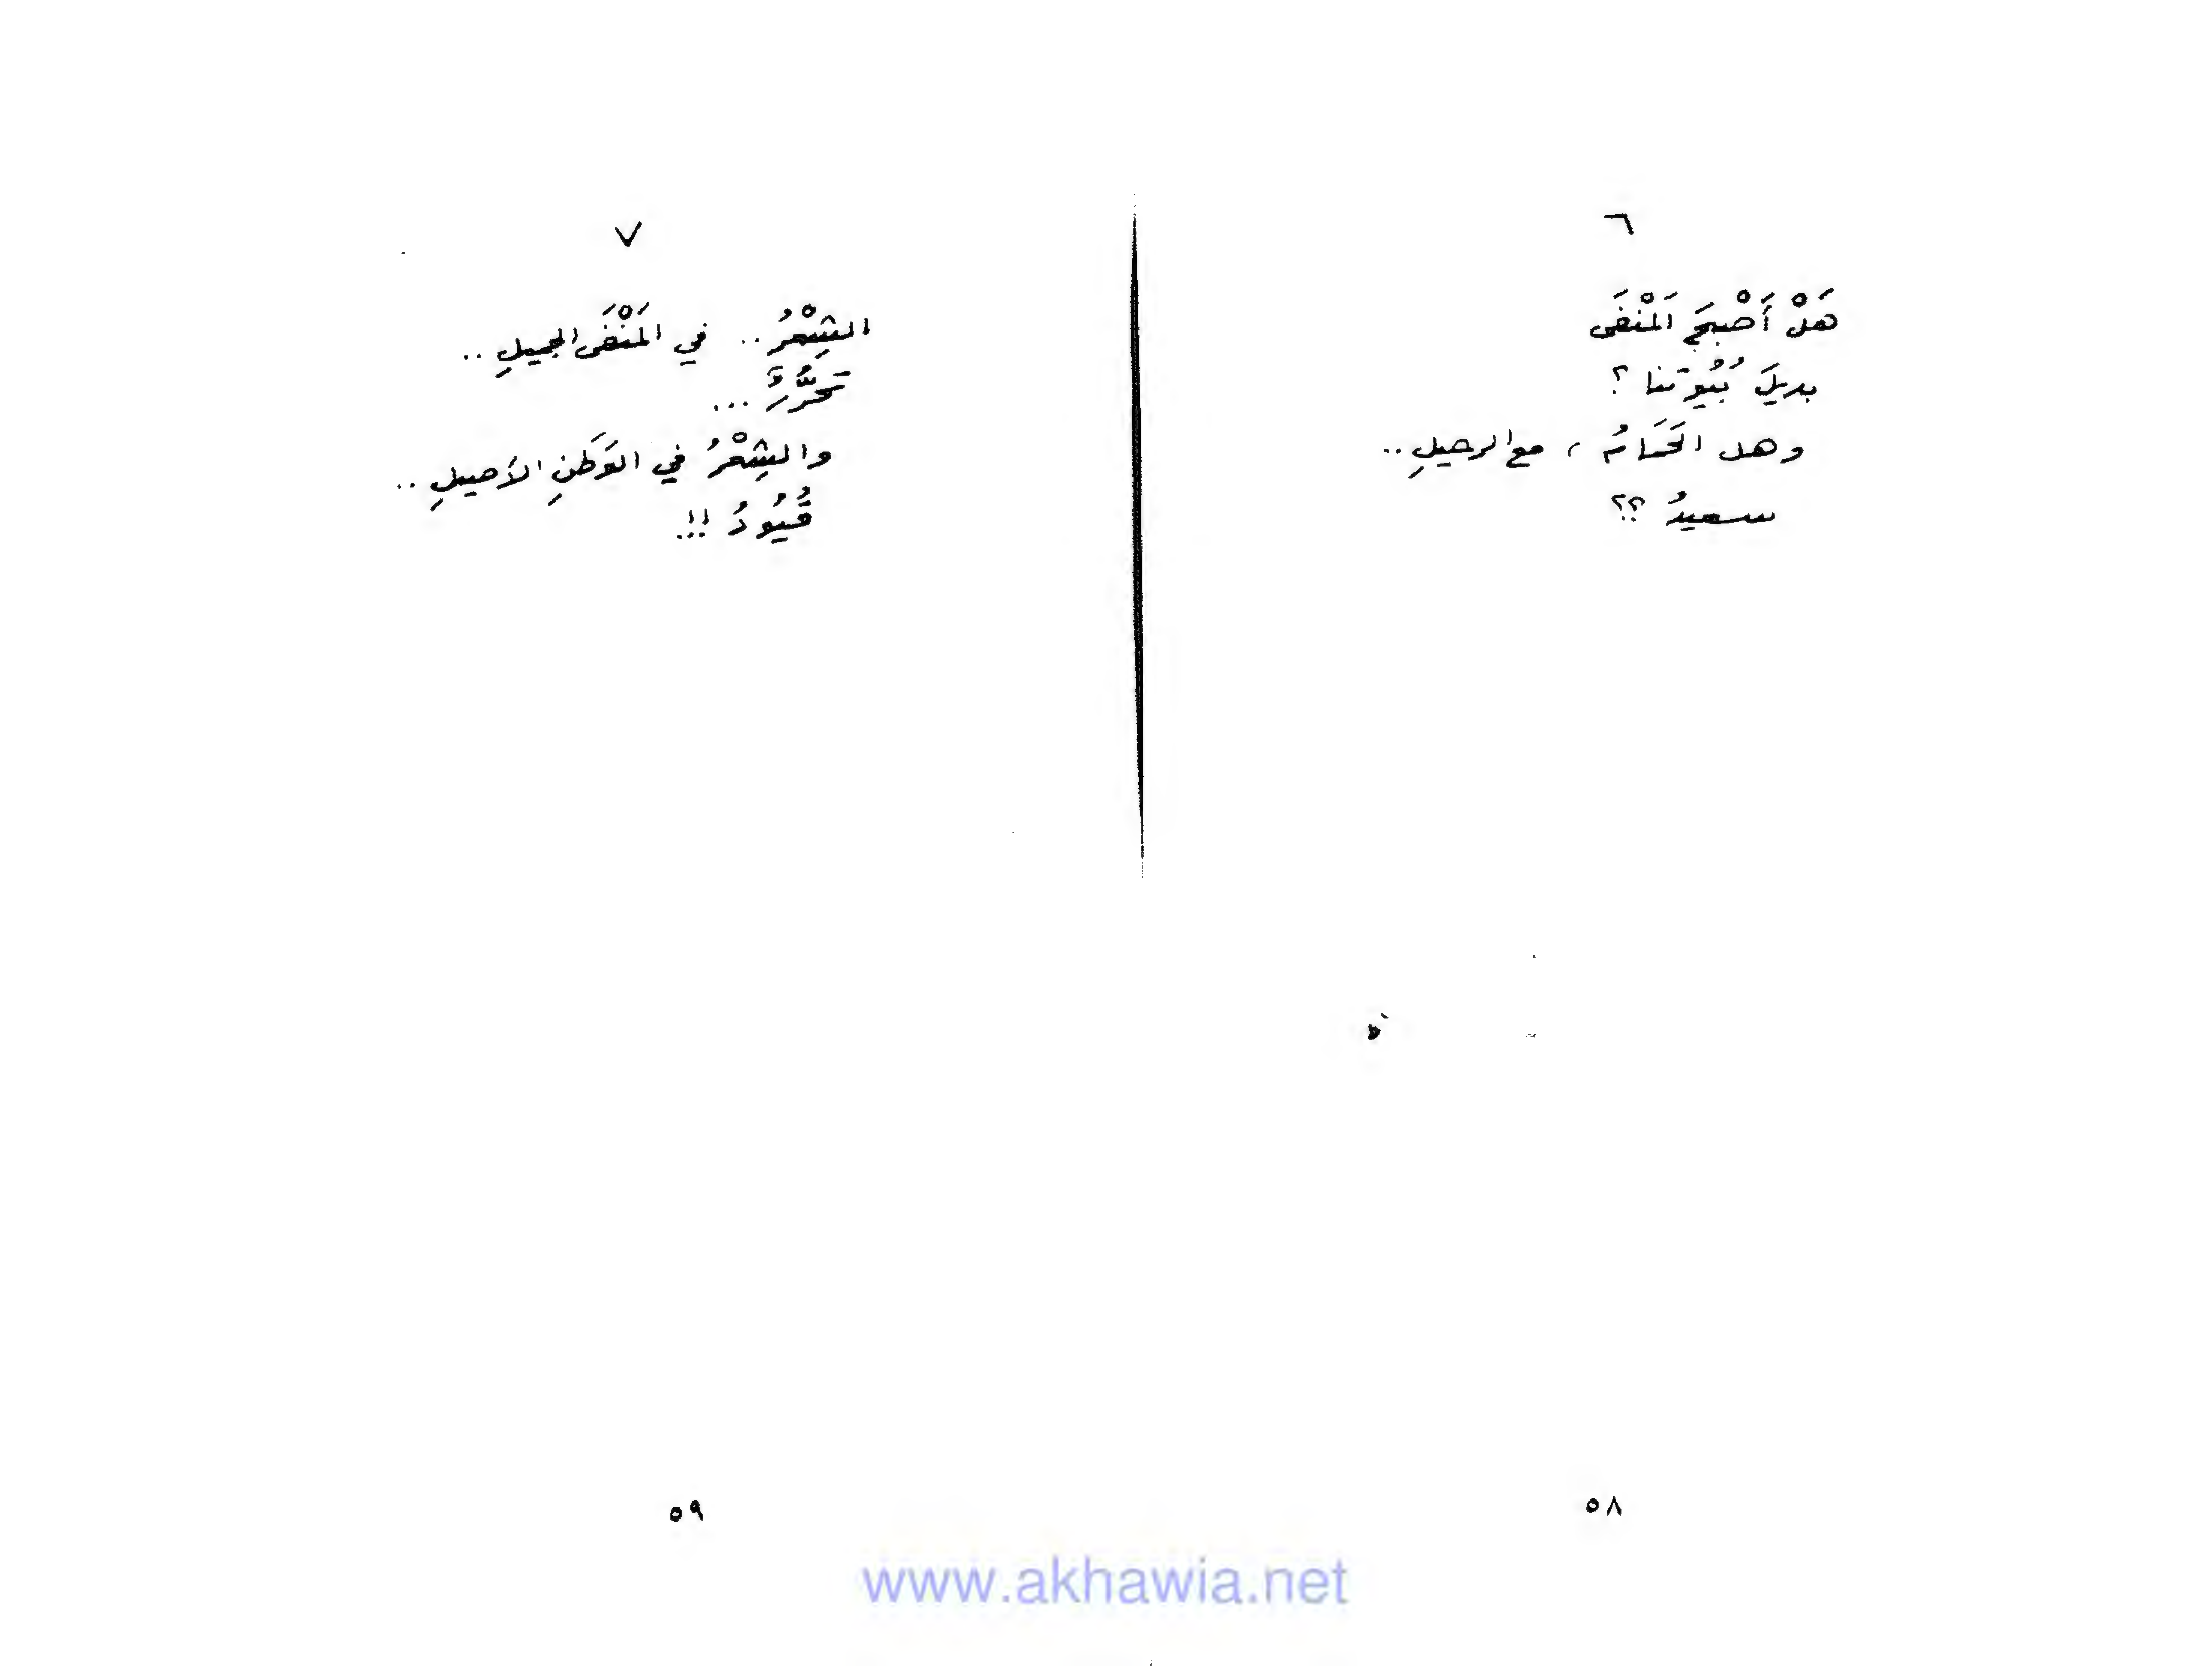 ٦
هَلْ أَصْبَحَ المَنْفَى
بديلَ بُيُوتنا ؟
وهل الحَمَامُ ، مع الرحيلِ ..
سعيدُ ؟؟
٥٨
٧
الشِعْرُ .. في المَنْفَى الجميلِ ..
تَحَرُّرٌ ...
والشِعْرُ في الوَطَنِ الأَصيلِ ..
قُيُودُ !!.
٥٩
www.akhawia.net